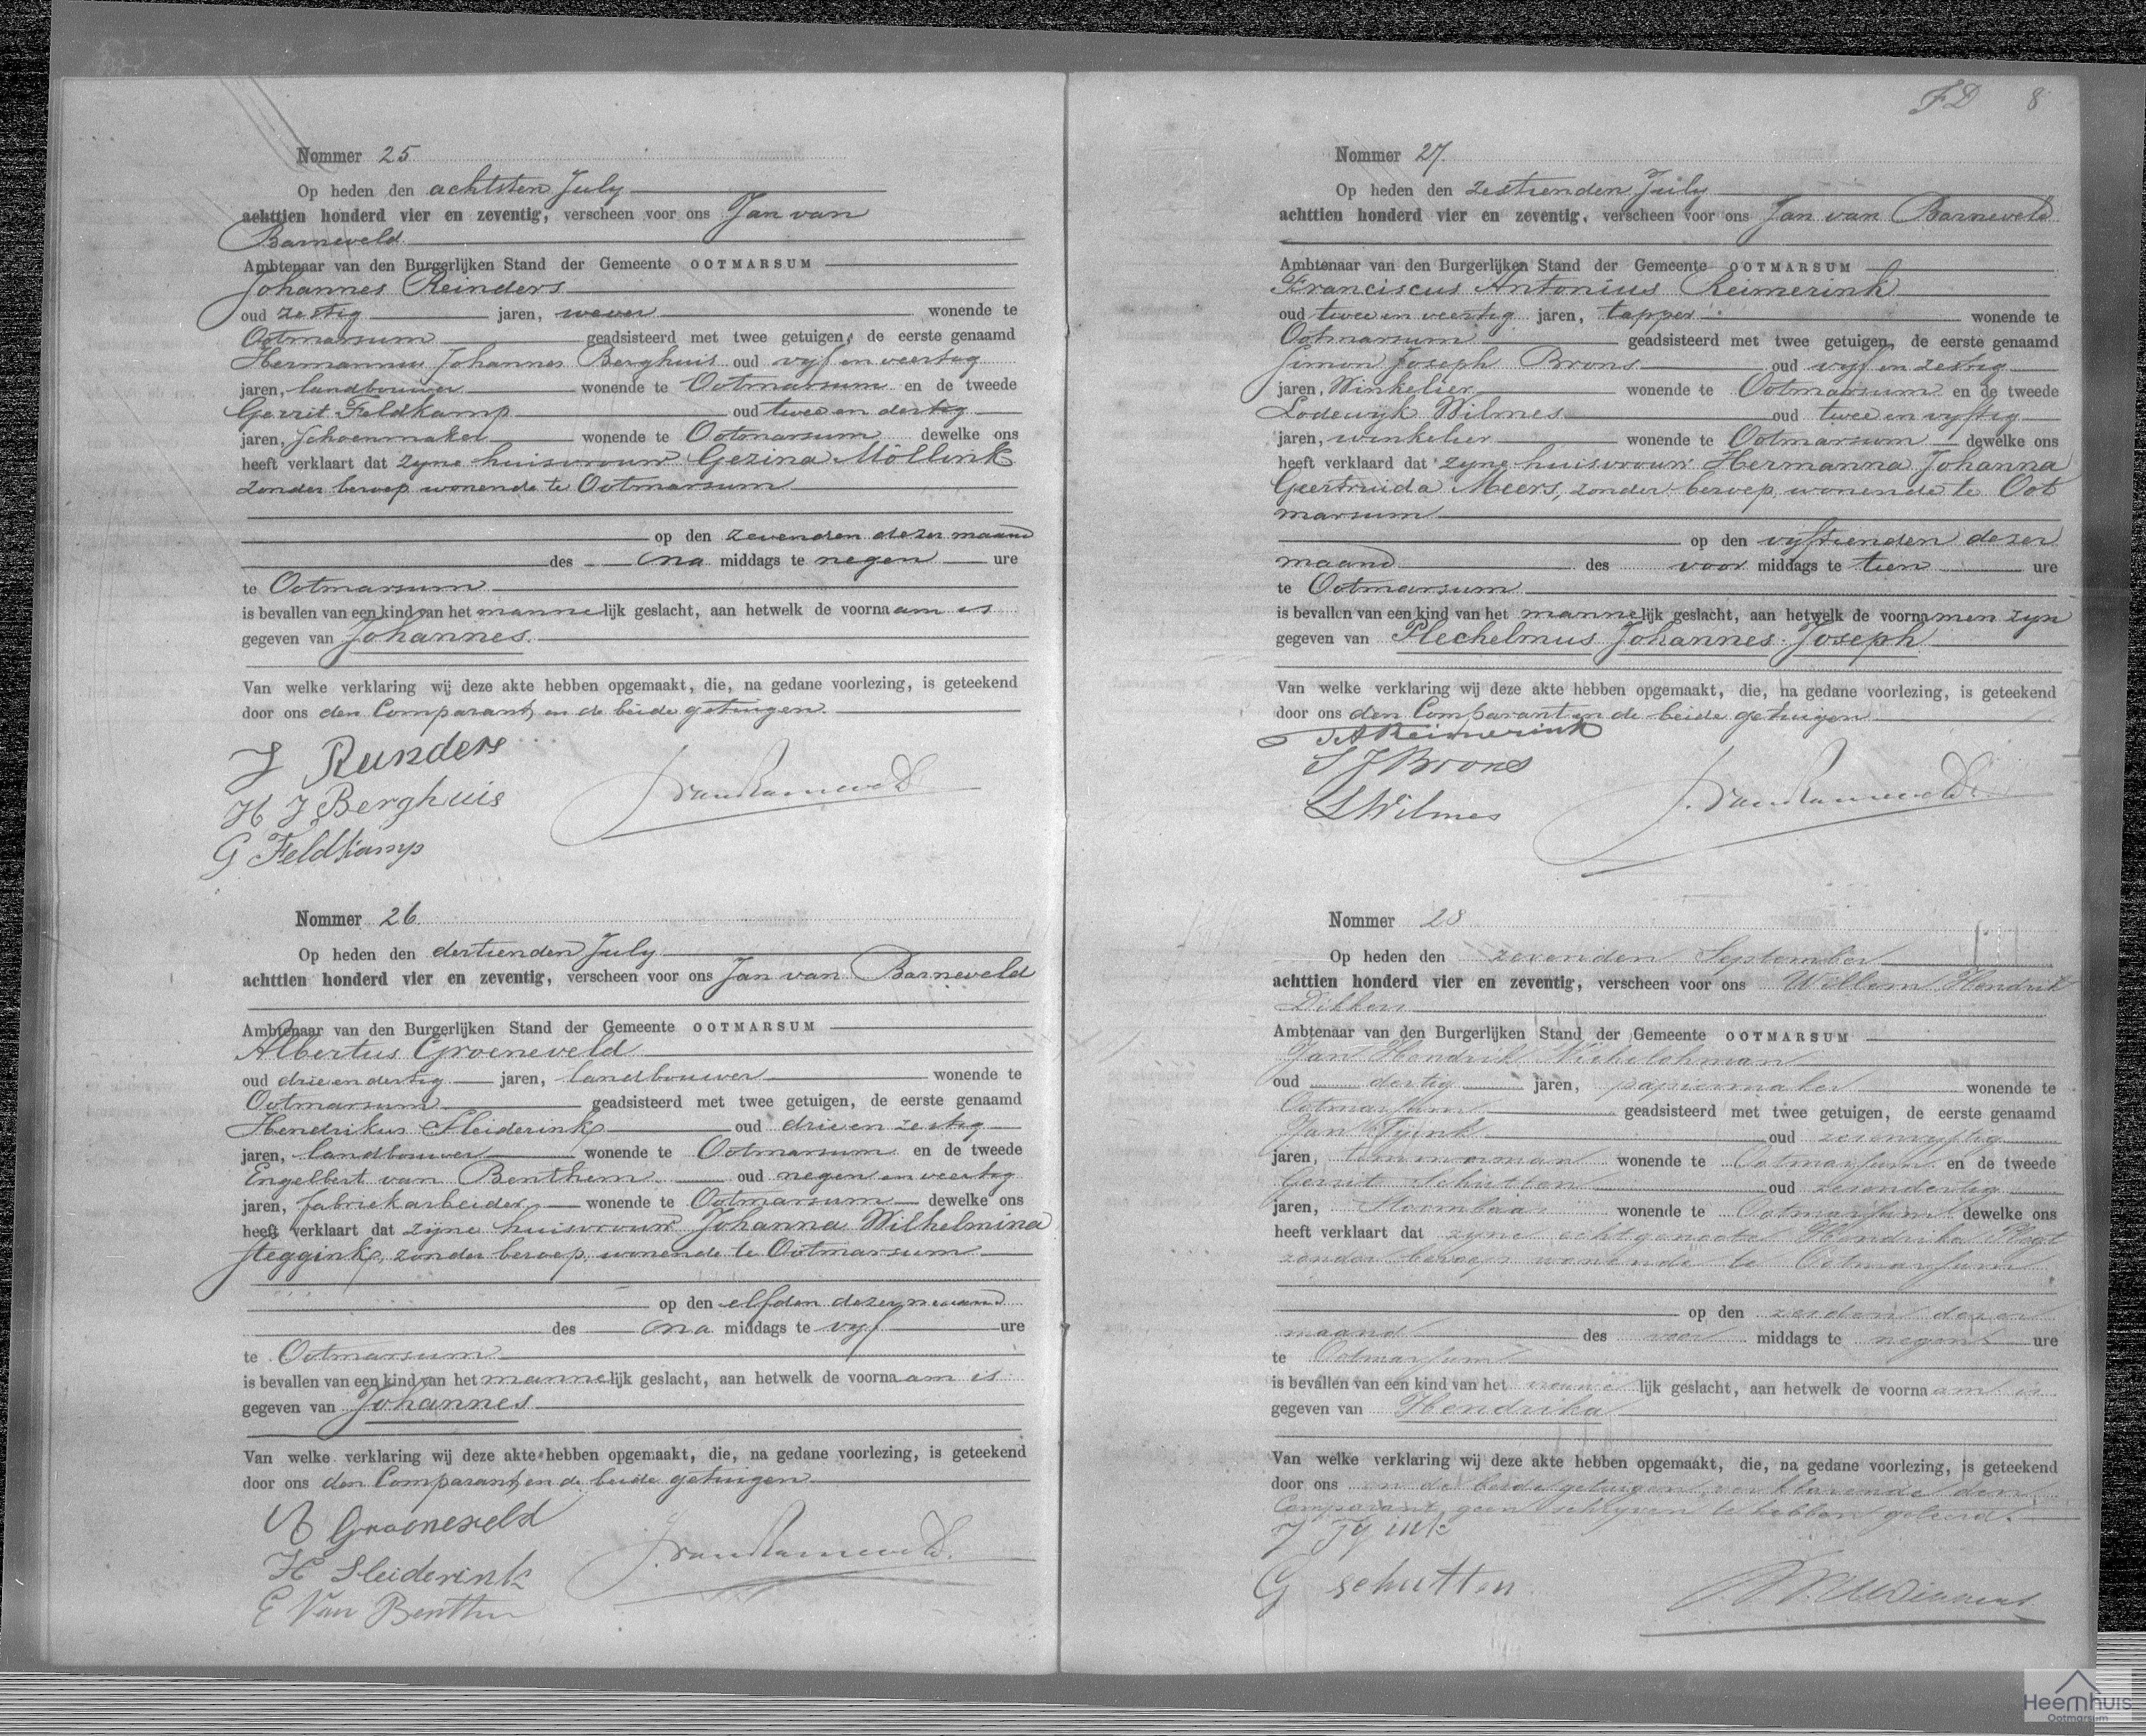 Nommer 25
Op heden den achtsten July
achttien honderd vier en zeventig, verscheen voor ons Jan van
Barneveld
Ambtenaar van den Burgerlijken Stand der Gemeente OOTMARSUM
Johannes Reinders
oud zestig jaren, wever wonende te
Ootmarsum geadsisteerd met twee getuigen, de eerste genaamd
Hermannus Johannes Berghuis oud vyf en veertig
jaren, landbouwer wonende te Ootmarsum en de tweede
Gerrit Feldkamp oud twee en dertig
jaren, schoenmaker wonende te Ootmarsum dewelke ons
heeft verklaart dat zyne huisvrouw Gezina Möllink
zonder beroep wonende te Ootmarsum
op den zevenden dezer maand
des na middags te negen ure
te Ootmarsum
is bevallen van een kind van het mannelijk geslacht, aan hetwelk de voornaam is
gegeven van Johannes.
Van welke verklaring wij deze akte hebben opgemaakt, die, na gedane voorlezing, is geteekend
door ons den Comparant, en de beide getuigen.
J Reinders
H J Berghuis
G Feldkamp
J. van Barneveld
Nommer 26.
Op heden den dertienden July
achttien honderd vier en zeventig, verscheen voor ons Jan van Barneveld
Ambtenaar van den Burgerlijken Stand der Gemeente OOTMARSUM
Albertus Groeneveld
oud drie en dertig jaren, landbouwer wonende te
Ootmarsum geadsisteerd met twee getuigen, de eerste genaamd
Hendrikus Sleiderink oud drie en zestig
jaren, landbouwer wonende te Ootmarsum en de tweede
Engelbert van Benthem oud negen en veertig
jaren, fabriekarbeider wonende te Ootmarsum dewelke ons
heeft verklaart dat zijne huisvrouw Johanna Wilhelmina
Steggink, zonder beroep, wonende te Ootmarsum
op den elfden dezer maand
des na middags te vyf ure
te Ootmarsum
is bevallen van een kind van het mannelijk geslacht, aan hetwelk de voornaam is
gegeven van Johannes
Van welke verklaring wij deze akte hebben opgemaakt, die, na gedane voorlezing, is geteekend
door ons den Comparant, en de beide getuigen
A Groeneveld
H Sleiderink
E Van Benthem
J. van Barneveld.
FD 8
Nommer 27.
Op heden den zestienden July
achttien honderd vier en zeventig, verscheen voor ons Jan van Barneveld
Ambtenaar van den Burgerlijken Stand der Gemeente OOTMARSUM
Franciscus Antonius Reimerink
oud twee en veertig jaren, tapper wonende te
Ootmarsum geadsisteerd met twee getuigen, de eerste genaamd
Simon Joseph Brons oud vyf en zestig
jaren, Winkelier wonende te Ootmarsum en de tweede
Lodewijk Wilmes oud twee en vyftig
jaren, winkelier wonende te Ootmarsum dewelke ons
heeft verklaard dat zyne huisvrouw Hermanna Johanna
Geertruida Meers, zonder beroep, wonende te Oot
marsum
op den vyftienden dezer
maand des voor middags te tien ure
te Ootmarsum
is bevallen van een kind van het mannelijk geslacht, aan hetwelk de voornamen zyn
gegeven van Plechelmus Johannes Joseph
Van welke verklaring wij deze akte hebben opgemaakt, die, na gedane voorlezing, is geteekend
door ons den Comparant en de beide getuigen
F A Reimerink
S J Brons
L Wilmes
J. van Barneveld.
Nommer 28
Op heden den zevenden September
achttien honderd vier en zeventig, verscheen voor ons Willem Hendrik
Dikkers
Ambtenaar van den Burgerlijken Stand der Gemeente OOTMARSUM
Jan Hendrik
oud dertig jaren, papiermaker wonende te
Ootmarsum geadsisteerd met twee getuigen, de eerste genaamd
Jan Tyink oud zevenvyftig
jaren, timmerman wonende te Ootmarsum en de tweede
Gerrit Schutten oud zevendertig
jaren, wonende te Ootmarsum dewelke ons
heeft verklaart dat zyne echtgenoote Hendrika Plegt
zonder beroep wonende te Ootmarsum
op den zesden dezer
maand des voor middags te negen ure
te Ootmarsum
is bevallen van een kind van het vrouwelijk geslacht, aan hetwelk de voornaam is
gegeven van Hendrika
Van welke verklaring wij deze akte hebben opgemaakt, die, na gedane voorlezing, is geteekend
door ons en de beide getuigen, verklarende den
Comparant geen schryven te hebben geleerd.
J Tyink
G Schutten
Heemhuis
Ootmarsum